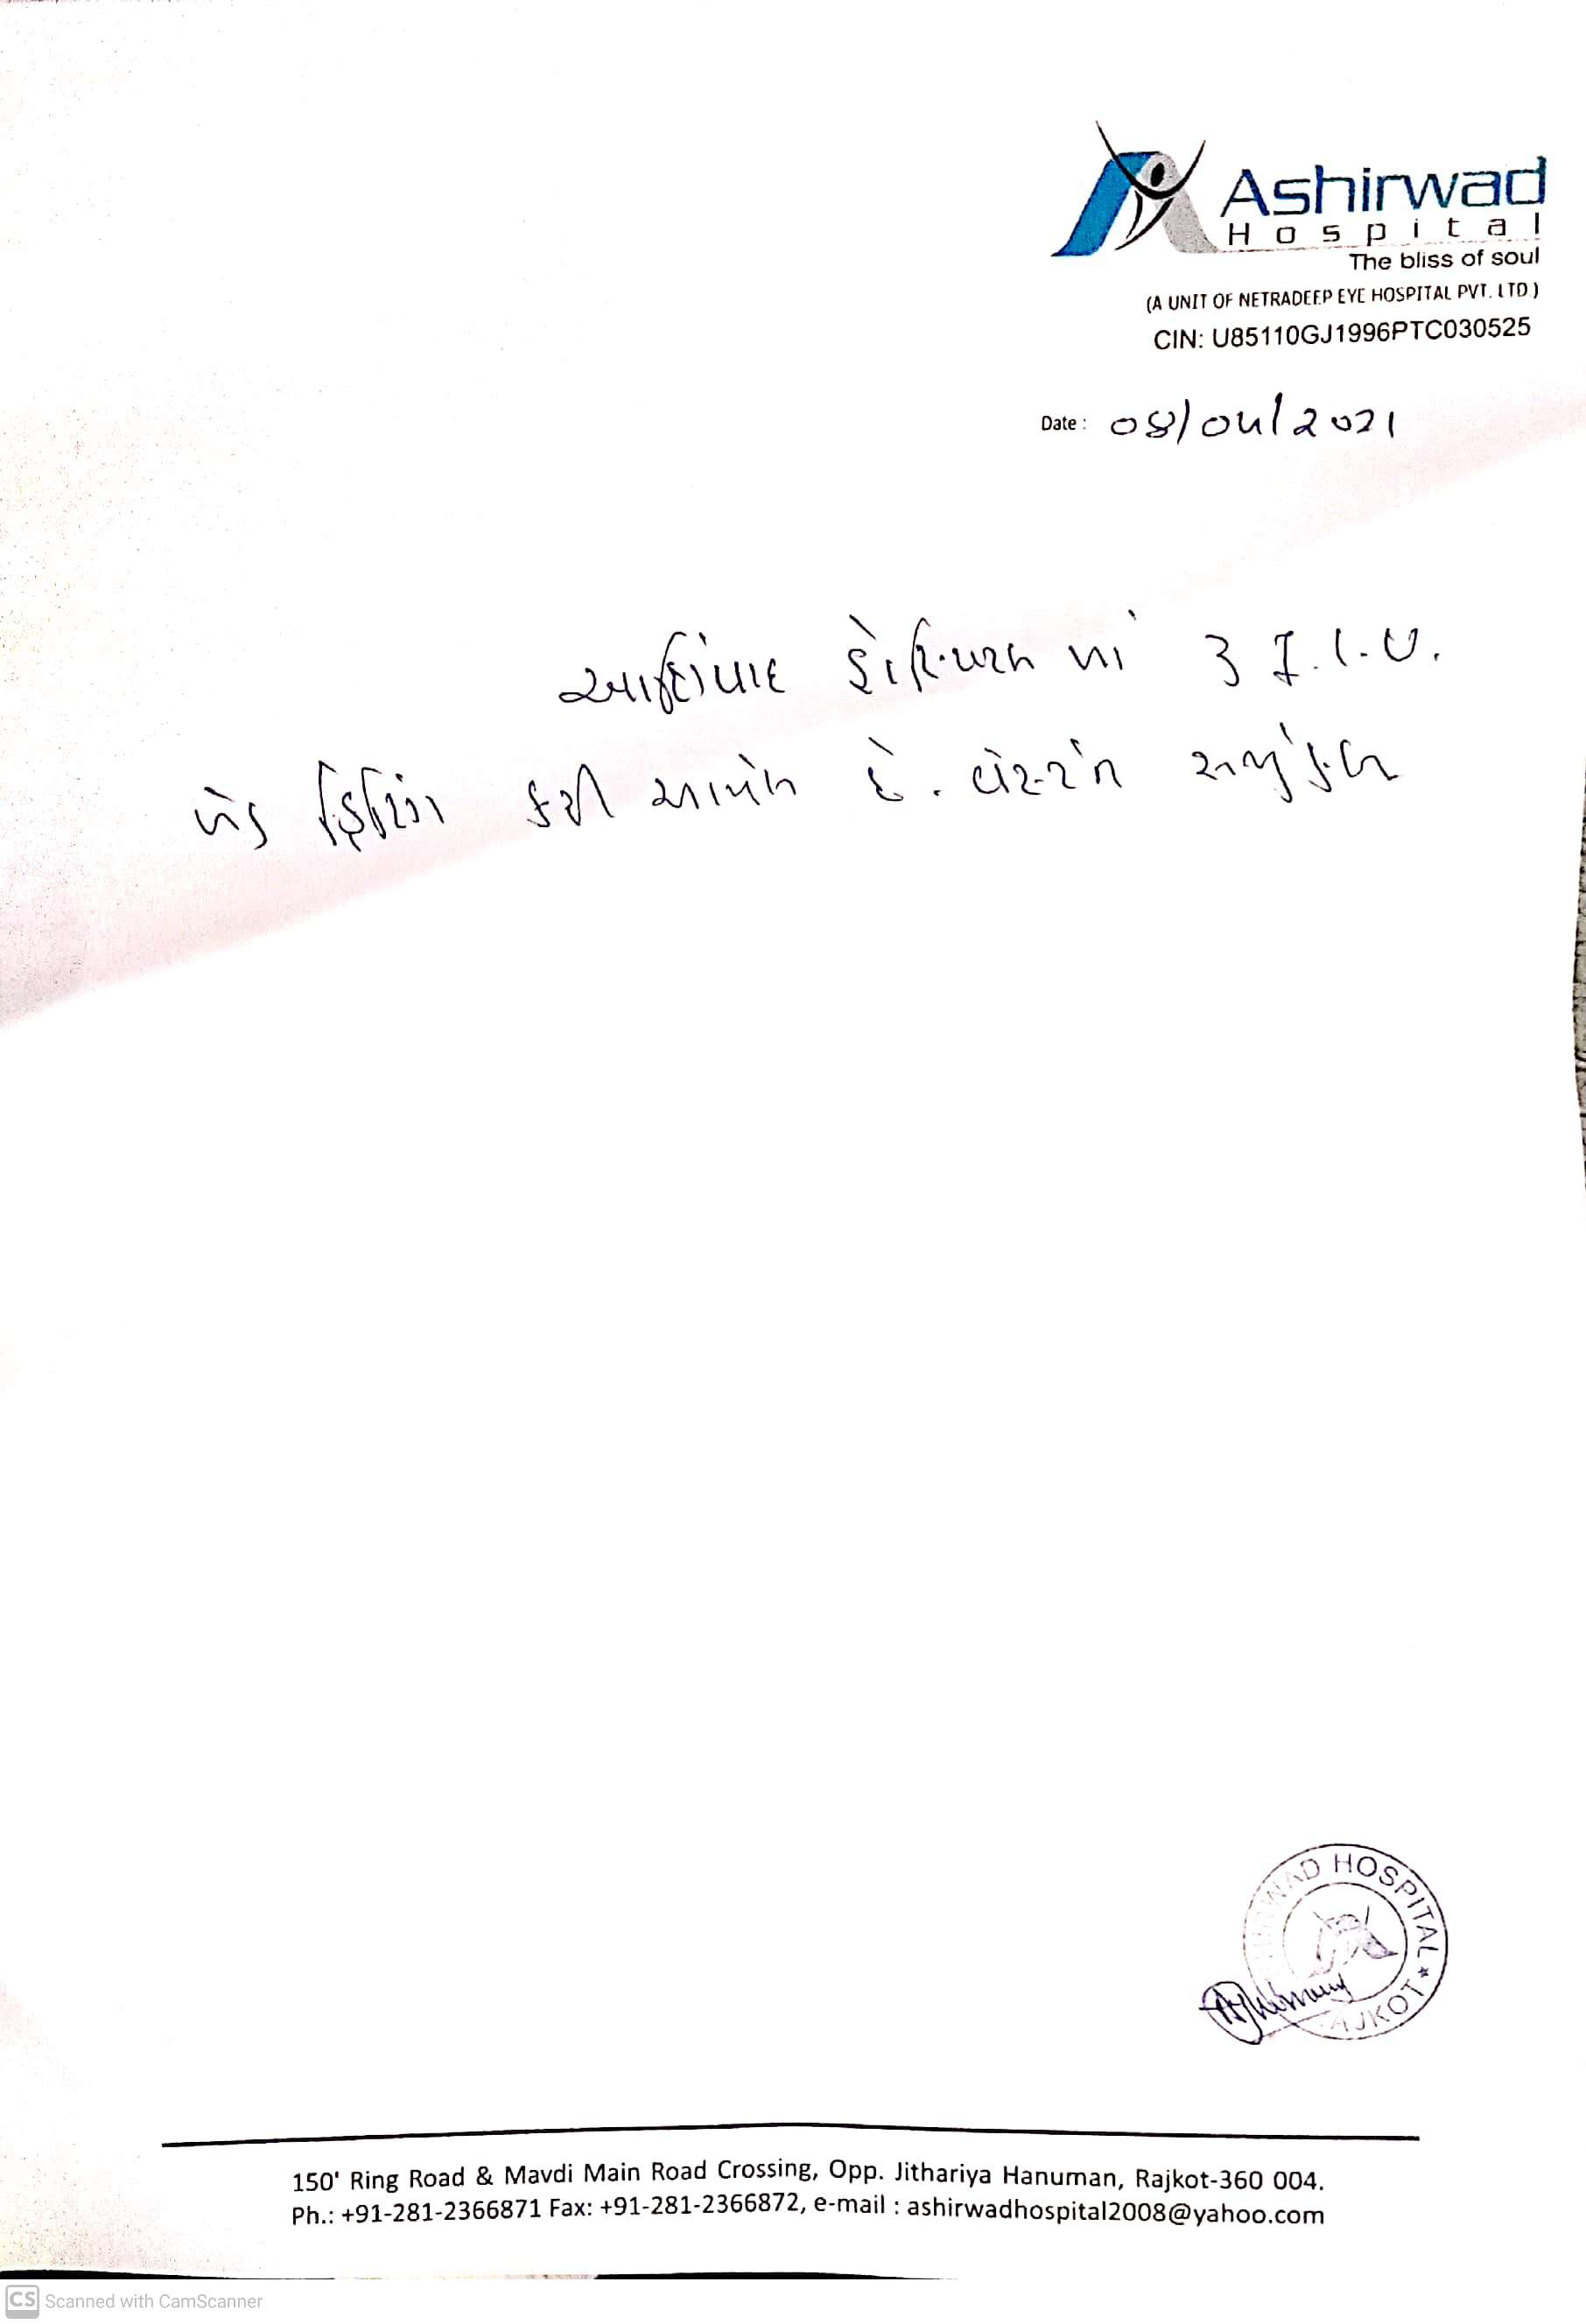 Ashirwad
Hospital
The bliss of soul
(A UNIT OF NETRADEEP EYE HOSPITAL PVT. LTD)
CIN: U85110GJ1996PTC030525
Date : 08/04/2021
આર્શિવાદ હોસ્પિટલ માં 3 I.C.U.
બેડ ફિટિંગ કરી આપેલ છે.
ASHIRWAD HOSPITAL * RAJKOT
150' Ring Road & Mavdi Main Road Crossing, Opp. Jithariya Hanuman, Rajkot-360 004.
Ph.: +91-281-2366871 Fax: +91-281-2366872, e-mail : ashirwadhospital2008@yahoo.com
CS Scanned with CamScanner